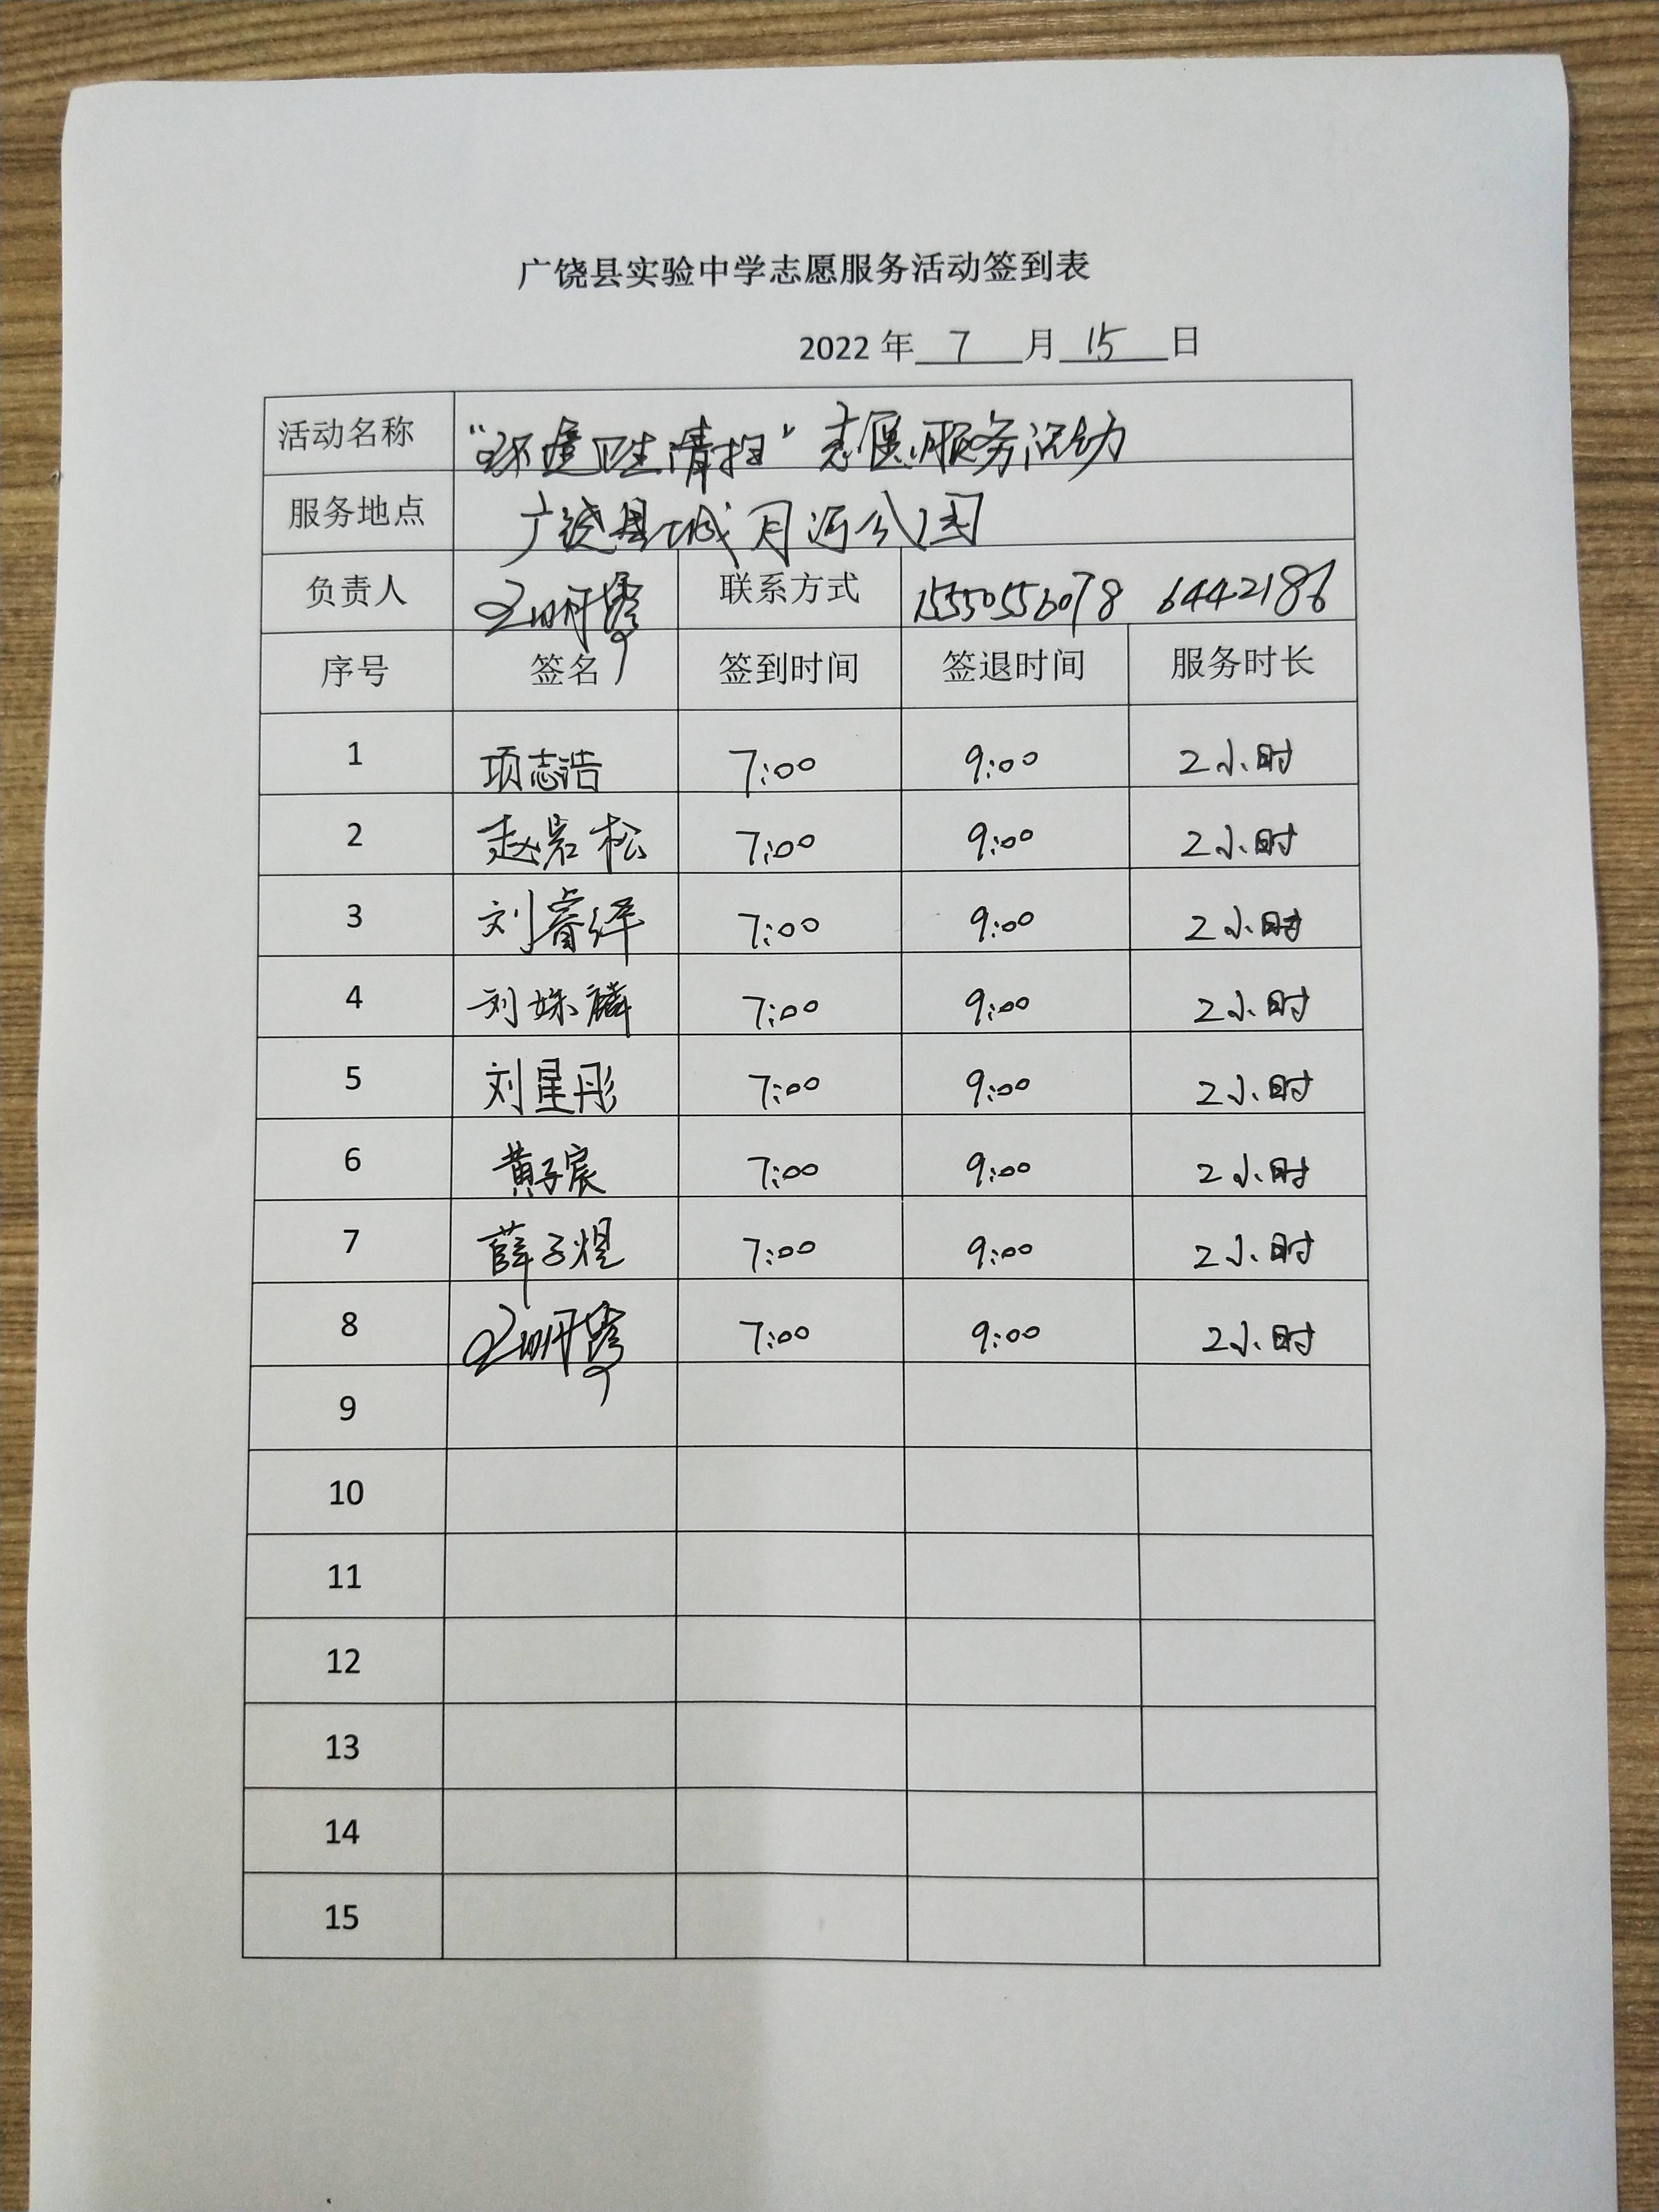 广饶县实验中学志愿服务活动签到表
2022 年 7 月 15 日
活动名称 “环境卫生清扫”志愿服务活动
服务地点 广饶县城月河公园
负责人 联系方式 15550556078 6442186
序号 签名 签到时间 签退时间 服务时长
1 项志浩 7:00 9:00 2小时
2 赵岩松 7:00 9:00 2小时
3 刘睿绎 7:00 9:00 2小时
4 刘姝麟 7:00 9:00 2小时
5 刘星彤 7:00 9:00 2小时
6 黄子宸 7:00 9:00 2小时
7 薛子煜 7:00 9:00 2小时
8 7:00 9:00 2小时
9
10
11
12
13
14
15